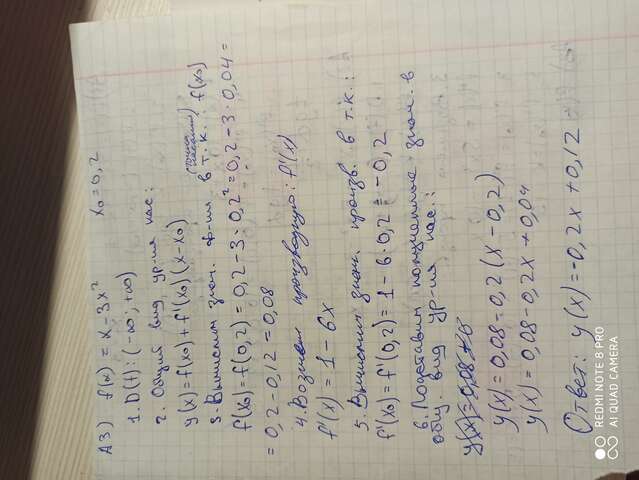 А3) f(x) = x - 3x² x₀ = 0,2
1. D(f): (-∞; +∞)
2. Общий вид ур-ия кас:
y(x) = f(x₀) + f'(x₀)(x - x₀)
(точка касания)
3. Вычислим знач. ф-ии в т.к.: f(x₀)
f(x₀) = f(0,2) = 0,2 - 3·0,2² = 0,2 - 3·0,04 =
= 0,2 - 0,12 = 0,08
4. Возьмем производную: f'(x)
f'(x) = 1 - 6x
5. Вычислим знач. произв. в т.к.:
f'(x₀) = f'(0,2) = 1 - 6·0,2 = -0,2
6. Подставим полученные знач. в
общ. вид ур-ия кас.:
y(x) = 0,08 +
y(x) = 0,08 - 0,2(x - 0,2)
y(x) = 0,08 - 0,2x + 0,04
Ответ: y(x) = -0,2x + 0,12
REDMI NOTE 8 PRO
AI QUAD CAMERA